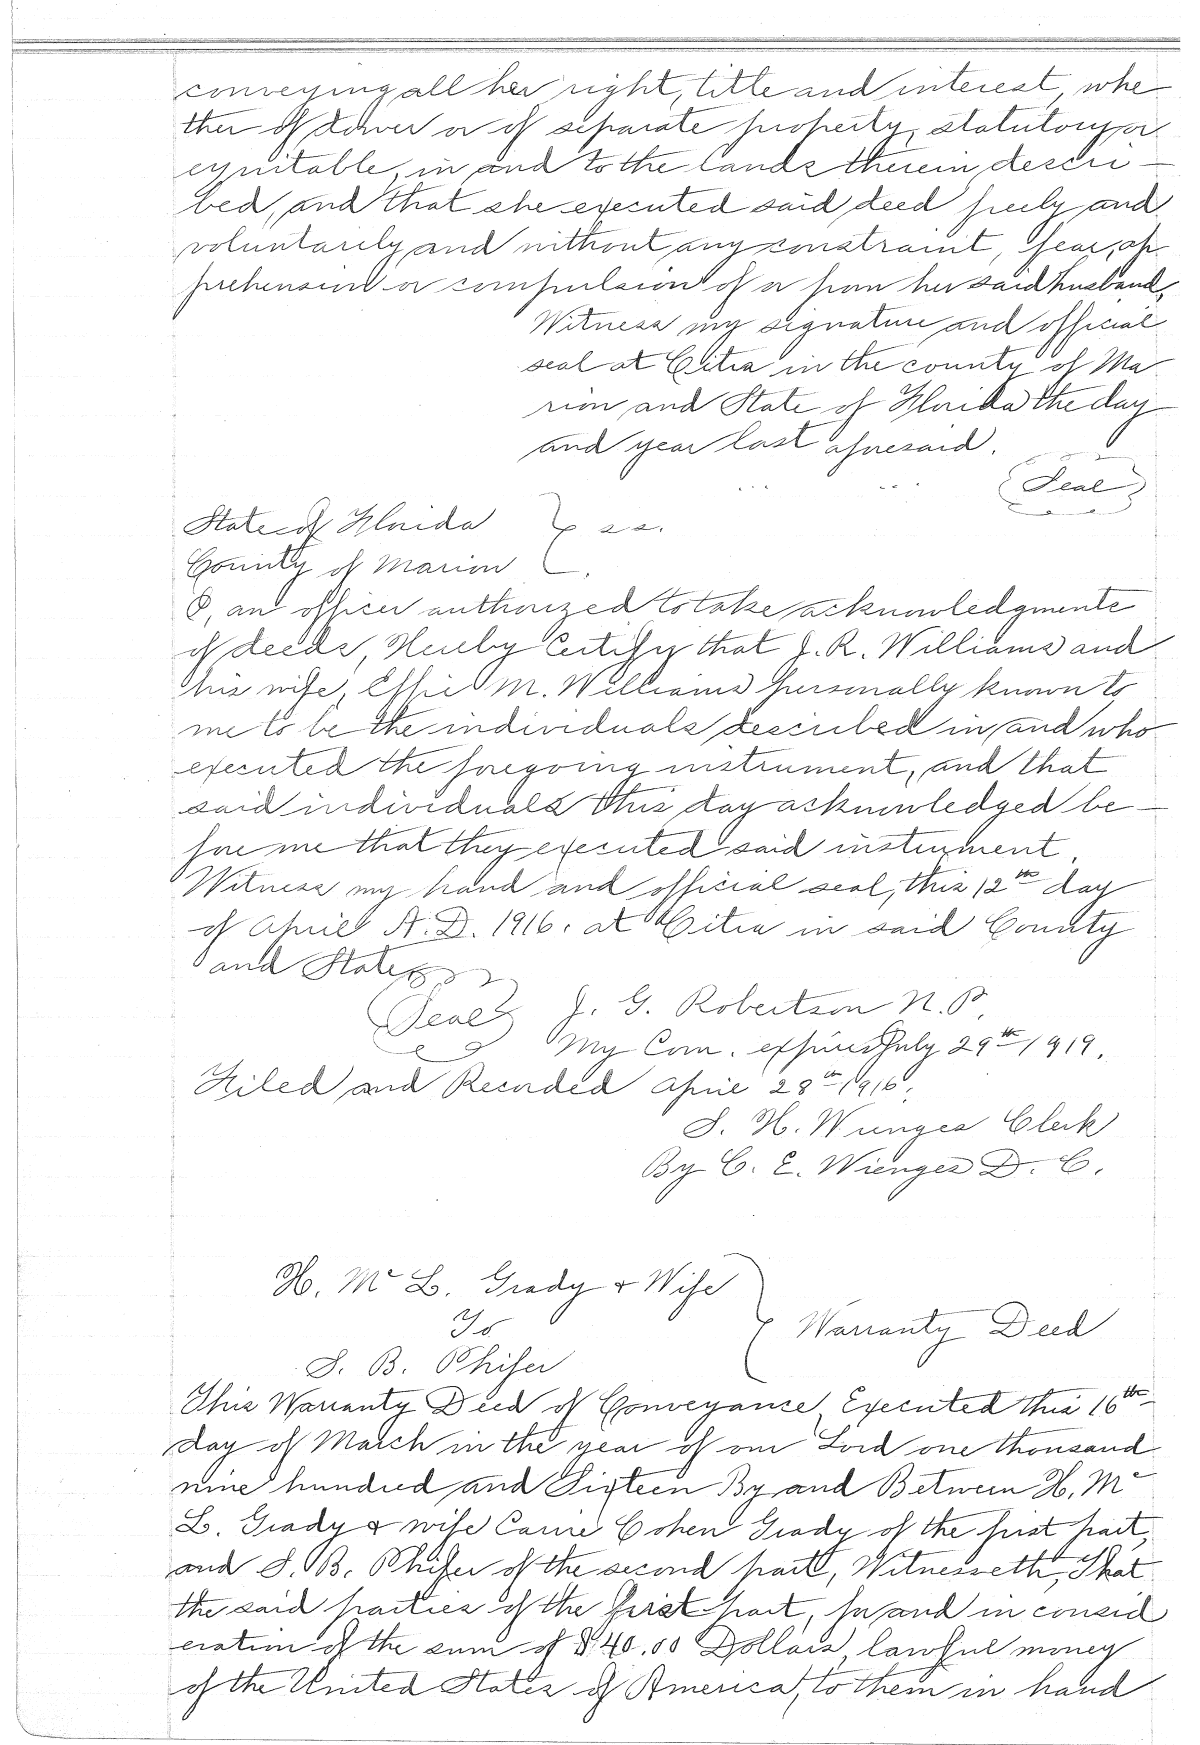 conveying all her right, title and interest, whe
ther of dower or of separate property, statutory or
equitable, in and to the lands therein descri-
bed, and that she executed said deed freely and
voluntarily and without any constraint, fear, ap
prehension or compulsion of or from her said husband,
Witness my signature and official
seal at Citra in the county of Ma
rion and State of Florida the day
and year last aforesaid.
Seal
State of Florida } ss.
County of Marion
I, an officer authorized to take acknowledgments
of deeds, Hereby Certify that J. R. Williams and
his wife, Effie M. Williams personally known to
me to be the individuals described in and who
executed the foregoing instrument, and that
said individuals this day acknowledged be-
fore me that they executed said instrument.
Witness my hand and official seal, this 12th day
of April A. D. 1916. at Citra in said County
and State
Seal J. G. Robertson N. P.
My Com. expires July 29th 1919.
Filed and Recorded April 28th 1916.
S. H. Clerk
By C. E. D. C.
H. Mc L. Grady & Wife
To } Warranty Deed
S. B. Phifer
This Warranty Deed of Conveyance, Executed this 16th
day of March in the year of our Lord one thousand
nine hundred and Sixteen By and Between H. Mc
L. Grady & wife Carrie Cohen Grady of the first part,
and S. B. Phifer of the second part, Witnesseth, That
the said parties of the first part, for and in consid
eration of the sum of $40.00 Dollars, lawful money
of the United States of America, to them in hand